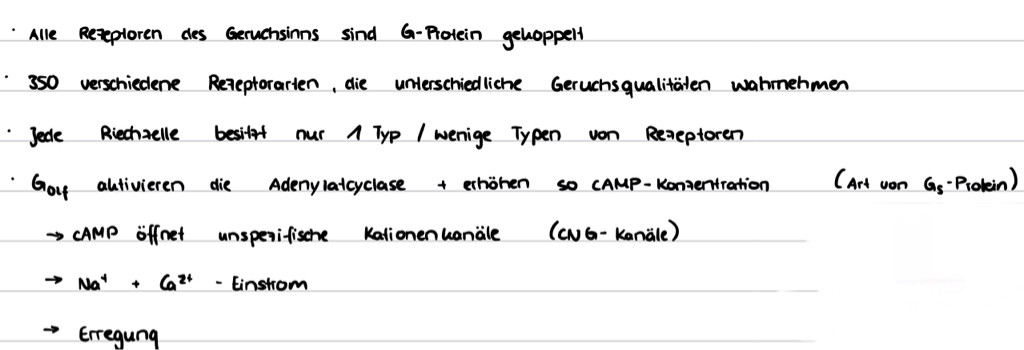 · Alle Rezeptoren des Geruchsinns sind G-Protein gekoppelt
· 350 verschiedene Rezeptorarten, die unterschiedliche Geruchsqualitäten wahrnehmen
· Jede Riechzelle besitzt nur 1 Typ / wenige Typen von Rezeptoren
· Golf aktivieren die Adenylatcyclase + erhöhen so cAMP-Konzentration (Art von Gs-Protein)
→ cAMP öffnet unspezifische Kationenkanäle (CNG-Kanäle)
→ Na⁺ + Ca²⁺ - Einstrom
→ Erregung